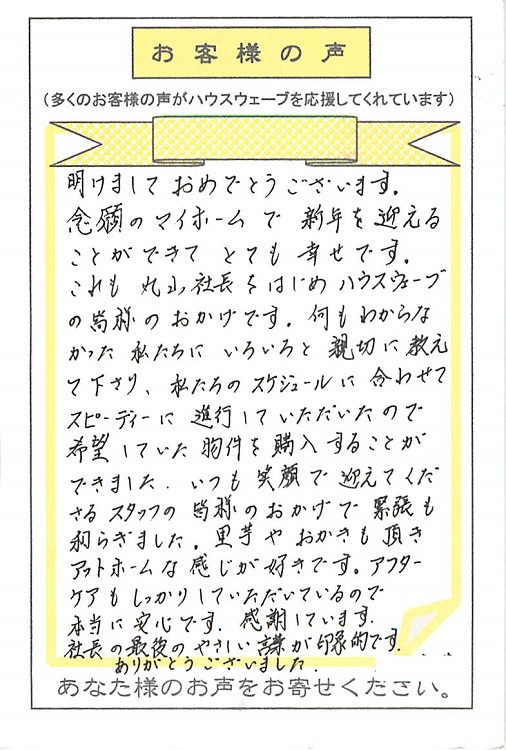 お客様の声
（多くのお客様の声がハウスウェーブを応援してくれています）
明けまして おめでとうございます。
念願のマイホームで 新年を迎える
ことができて とても 幸せです。
これも 丸山社長をはじめ ハウスウェーブ
の皆様のおかげです。何もわからな
かった 私たちに いろいろと 親切に教え
て下さり、私たちのスケジュールに 合わせて
スピーディーに 進行していただいたので
希望していた 物件を購入することが
できました。いつも 笑顔で 迎えてくだ
さるスタッフの 皆様のおかげで 緊張も
和らぎました。里芋や おかきも 頂き
アットホームな 感じが好きです。アフター
ケアも しっかりしていただいているので
本当に 安心です。感謝しています。
社長の最後の やさしい 言葉が印象的です。
ありがとうございました。
あなた様のお声をお寄せください。